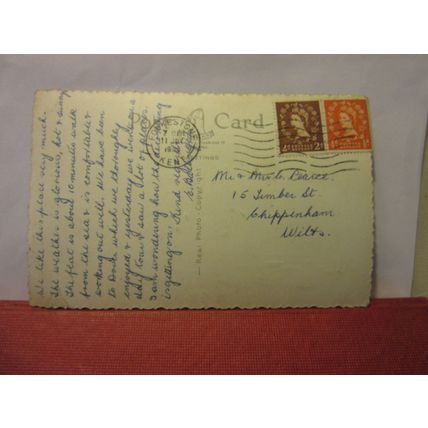 We like this place very much.
The weather is glorious, hot & sunny
The flat is about 10 minutes walk
from the sea & is comfortable &
working out well. We have been
to Dover which we thoroughly
enjoyed & yesterday we went on a
day tour & saw a lot of
I am wondering how the
is getting on. Kind regards
Card
— Real Photo Copyright
2½d
½d
Mr & Mrs C. Pearce.
15 Timber St
Chippenham
Wilts.